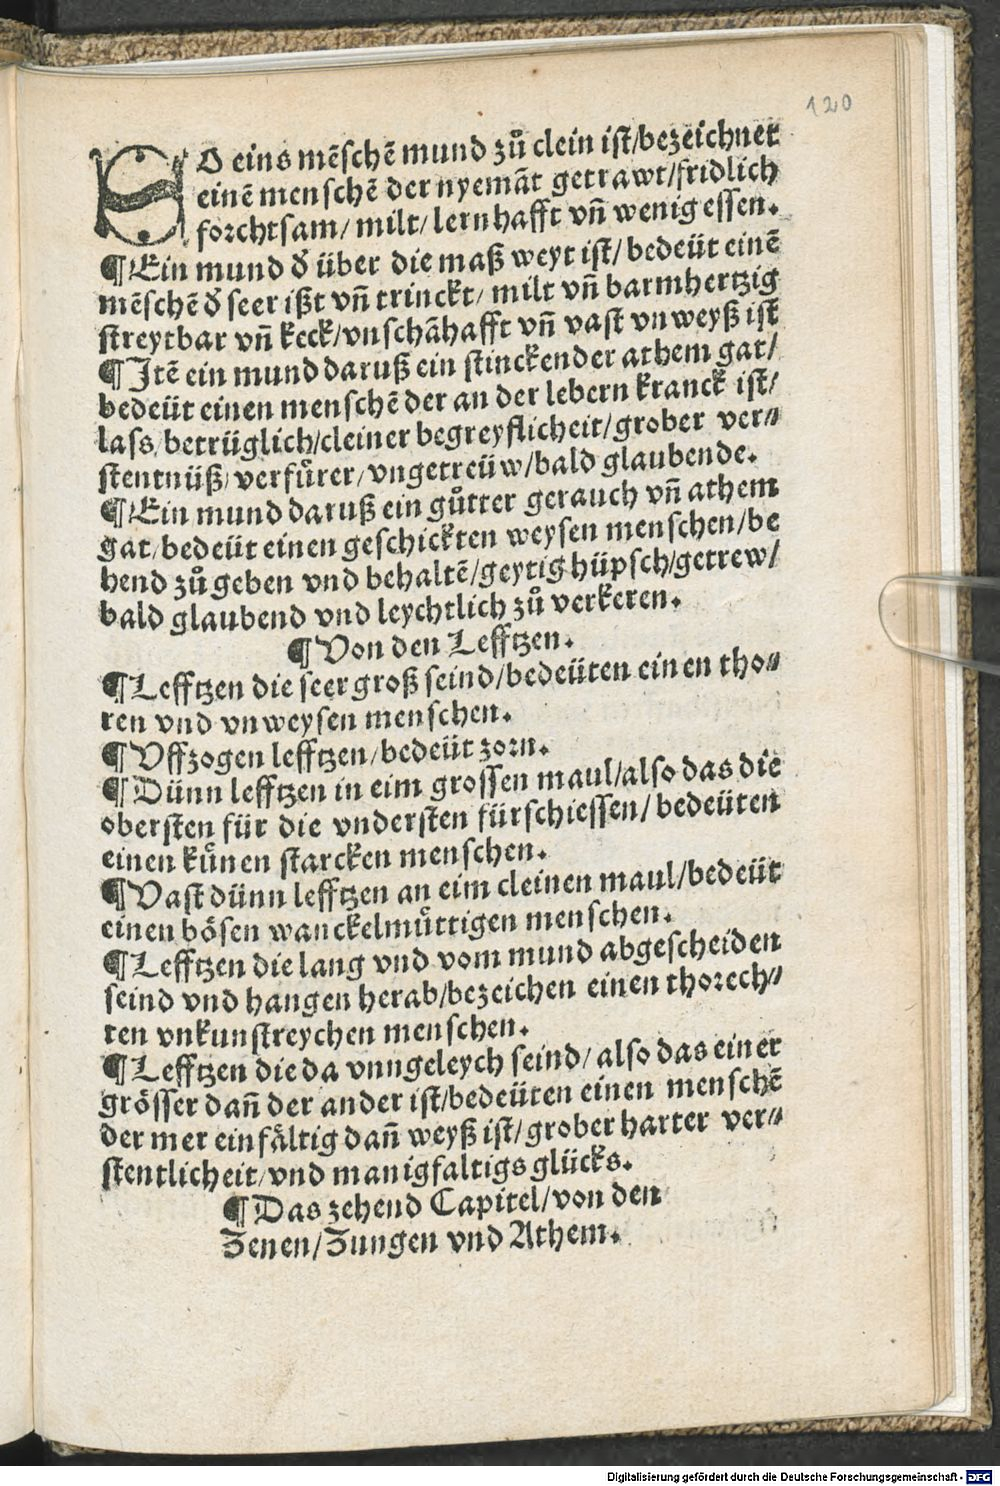 120
SO eins mẽschẽ mund zů clein ist/bezeichnet
einẽ menschẽ der nyemãt getrawt/fridlich
forchtsam/ milt/ lernhafft vñ wenig essen.
¶Ein mund ď über die maß weyt ist/ bedeüt einẽ
mẽschẽ ď seer ißt vñ trinckt/ milt vñ barmhertzig
streytbar vñ keck/vnschãhafft vñ vast vnweyß ist
¶Itẽ ein mund daruß ein stinckender athem gat/
bedeüt einen menschẽ der an der lebern kranck ist/
lass/betrüglich/cleiner begreyflicheit/grober ver⸗
stentnüß/verfůrer/vngetreüw/bald glaubende.
¶Ein mund daruß ein gůtter gerauch vñ athem
gat/bedeüt einen geschickten weysen menschen/be
hend zů geben vnd behaltẽ/geytig hüpsch/getrew/
bald glaubend vnd leychtlich zů verkeren.
¶Von den Lefftzen.
¶Lefftzen die seer groß seind/bedeüten einen tho⸗
ren vnd vnweysen menschen.
¶Vffzogen lefftzen/bedeüt zorn.
¶Dünn lefftzen in eim grossen maul/also das die
obersten für die vndersten fürschiessen/ bedeüten
einen kůnen starcken menschen.
¶Vast dünn lefftzen an eim cleinen maul/bedeüt
einen bösen wanckelmůttigen menschen.
¶Lefftzen die lang vnd vom mund abgescheiden
seind vnd hangen herab/bezeichen einen thorech⸗
ten vnkunstreychen menschen.
¶Lefftzen die da vnngeleych seind/ also das einer
grösser dañ der ander ist/bedeüten einen menschẽ
der mer einfältig dañ weyß ist/grober harter ver⸗
stentlicheit/vnd manigfaltigs glücks.
¶Das zehend Capitel/von den
Zenen/Zungen vnd Athem.
Digitalisierung gefördert durch die Deutsche Forschungsgemeinschaft - DFG